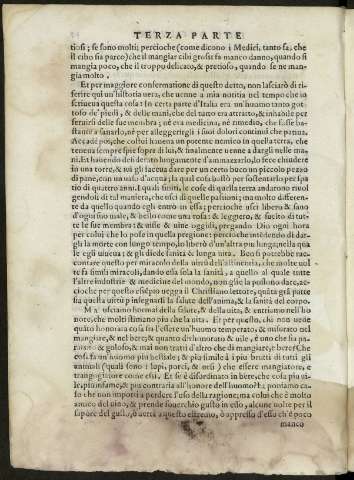 TERZA PARTE
tiosi; se sono molti; percioche (come dicono i Medici, tanto fa, che
il cibo sia parco) che il mangiar cibi grossi fa manco danno, quando si
mangia poco, che il troppo delicato, & pretioso, quando se ne man-
gia molto.
Et per maggiore confermatione di questo detto, non lasciarò di ri-
ferire qui un'historia uera, che uenne a mia notitia nel tempo che io
scriueua questa cosa: In certa parte d'Italia era un'huomo tanto got-
toso de' piedi, & delle mani, che del tutto era attratto, & inhabile per
seruirsi delle sue membra; nè era medicina, nè rimedio, che fusse ba-
stante a sanarlo, nè per alleggerirgli i suoi dolori continui che patiua.
Accadè poi, che costui haueua un potente nemico in quella terra, che
teneua sempre spie sopra di lui, & finalmente uenne a dargli nelle ma-
ni. Et hauendo desiderato lungamente d'ammazzarlo, lo fece chiudere
in una torre, & iui gli faceua dare per un certo buco un piccolo pezzo
di pane, con un uaso d'acqua; la qual cosa bastò per sostentarlo per spa-
tio di quattro anni. I quali finiti, le cose di quella terra andarono riuol
gendosi di tal maniera, che uscì da quelle passioni; ma molto differen-
te da quello quando egli entrò in essa; percioche uscì libero & sano
d'ogni suo male, & bello come una rosa: & leggero, & sciolto di tut-
te le sue membra: & uisse & uiue oggidì, pregando Dio ogni hora
per colui che lo pose in quella pregione: percioche intendendo di dar-
gli la morte con lungo tempo, lo liberò d'un'altra più lunga, nella qua
le egli uiueua; & gli diede sanità & lunga uita. Ben si potrebbe rac-
contare questo per miracolo della uirtù dell'astinentia, che molte uol
te fa simili miracoli, dando essa sola la sanità, a quello al quale tutte
l'altre industrie & medicine del mondo, non gliè la possono dare, ac-
cioche per questo essẽpio uegga il Christiano lettore, quãta grã parte
sia questa uirtù p insegnarsi la salute dell'anima, & la sanità del corpo.
Ma' usciamo hormai della salute, & della uita, & entriamo nell'ho
nore, che molti stimano più che la uita. Et per questo, chi non uede
quãto honorata cosa sia l'essere un'huomo temperato, & misurato nel
mangiare, & nel bere; & quanto dishonorato & uile, è uno che sia pa-
rasito & goloso, & mai non tratti d'altro che di mangiare, & bere? Che
cosa fa un'huomo più bestiale; & più simile à i più brutti di tutti gli
animali (quali sono i lupi, porci, & orsi) che essere mangiatore, e
trangugiatore come essi. Et se è disordinato in bere, che cosa più ui-
le, più infame, & più contraria all'honore dell'huomo? & poniamo ca-
so che non importi a perdere l'uso della ragione; ma colui che è molto
amico del uino, & prende souerchio gusto in esso, alcune uolte per il
sapore del gusto, ò uerrà a questo estremo, ò appresso d'esso ch'è poco
manco